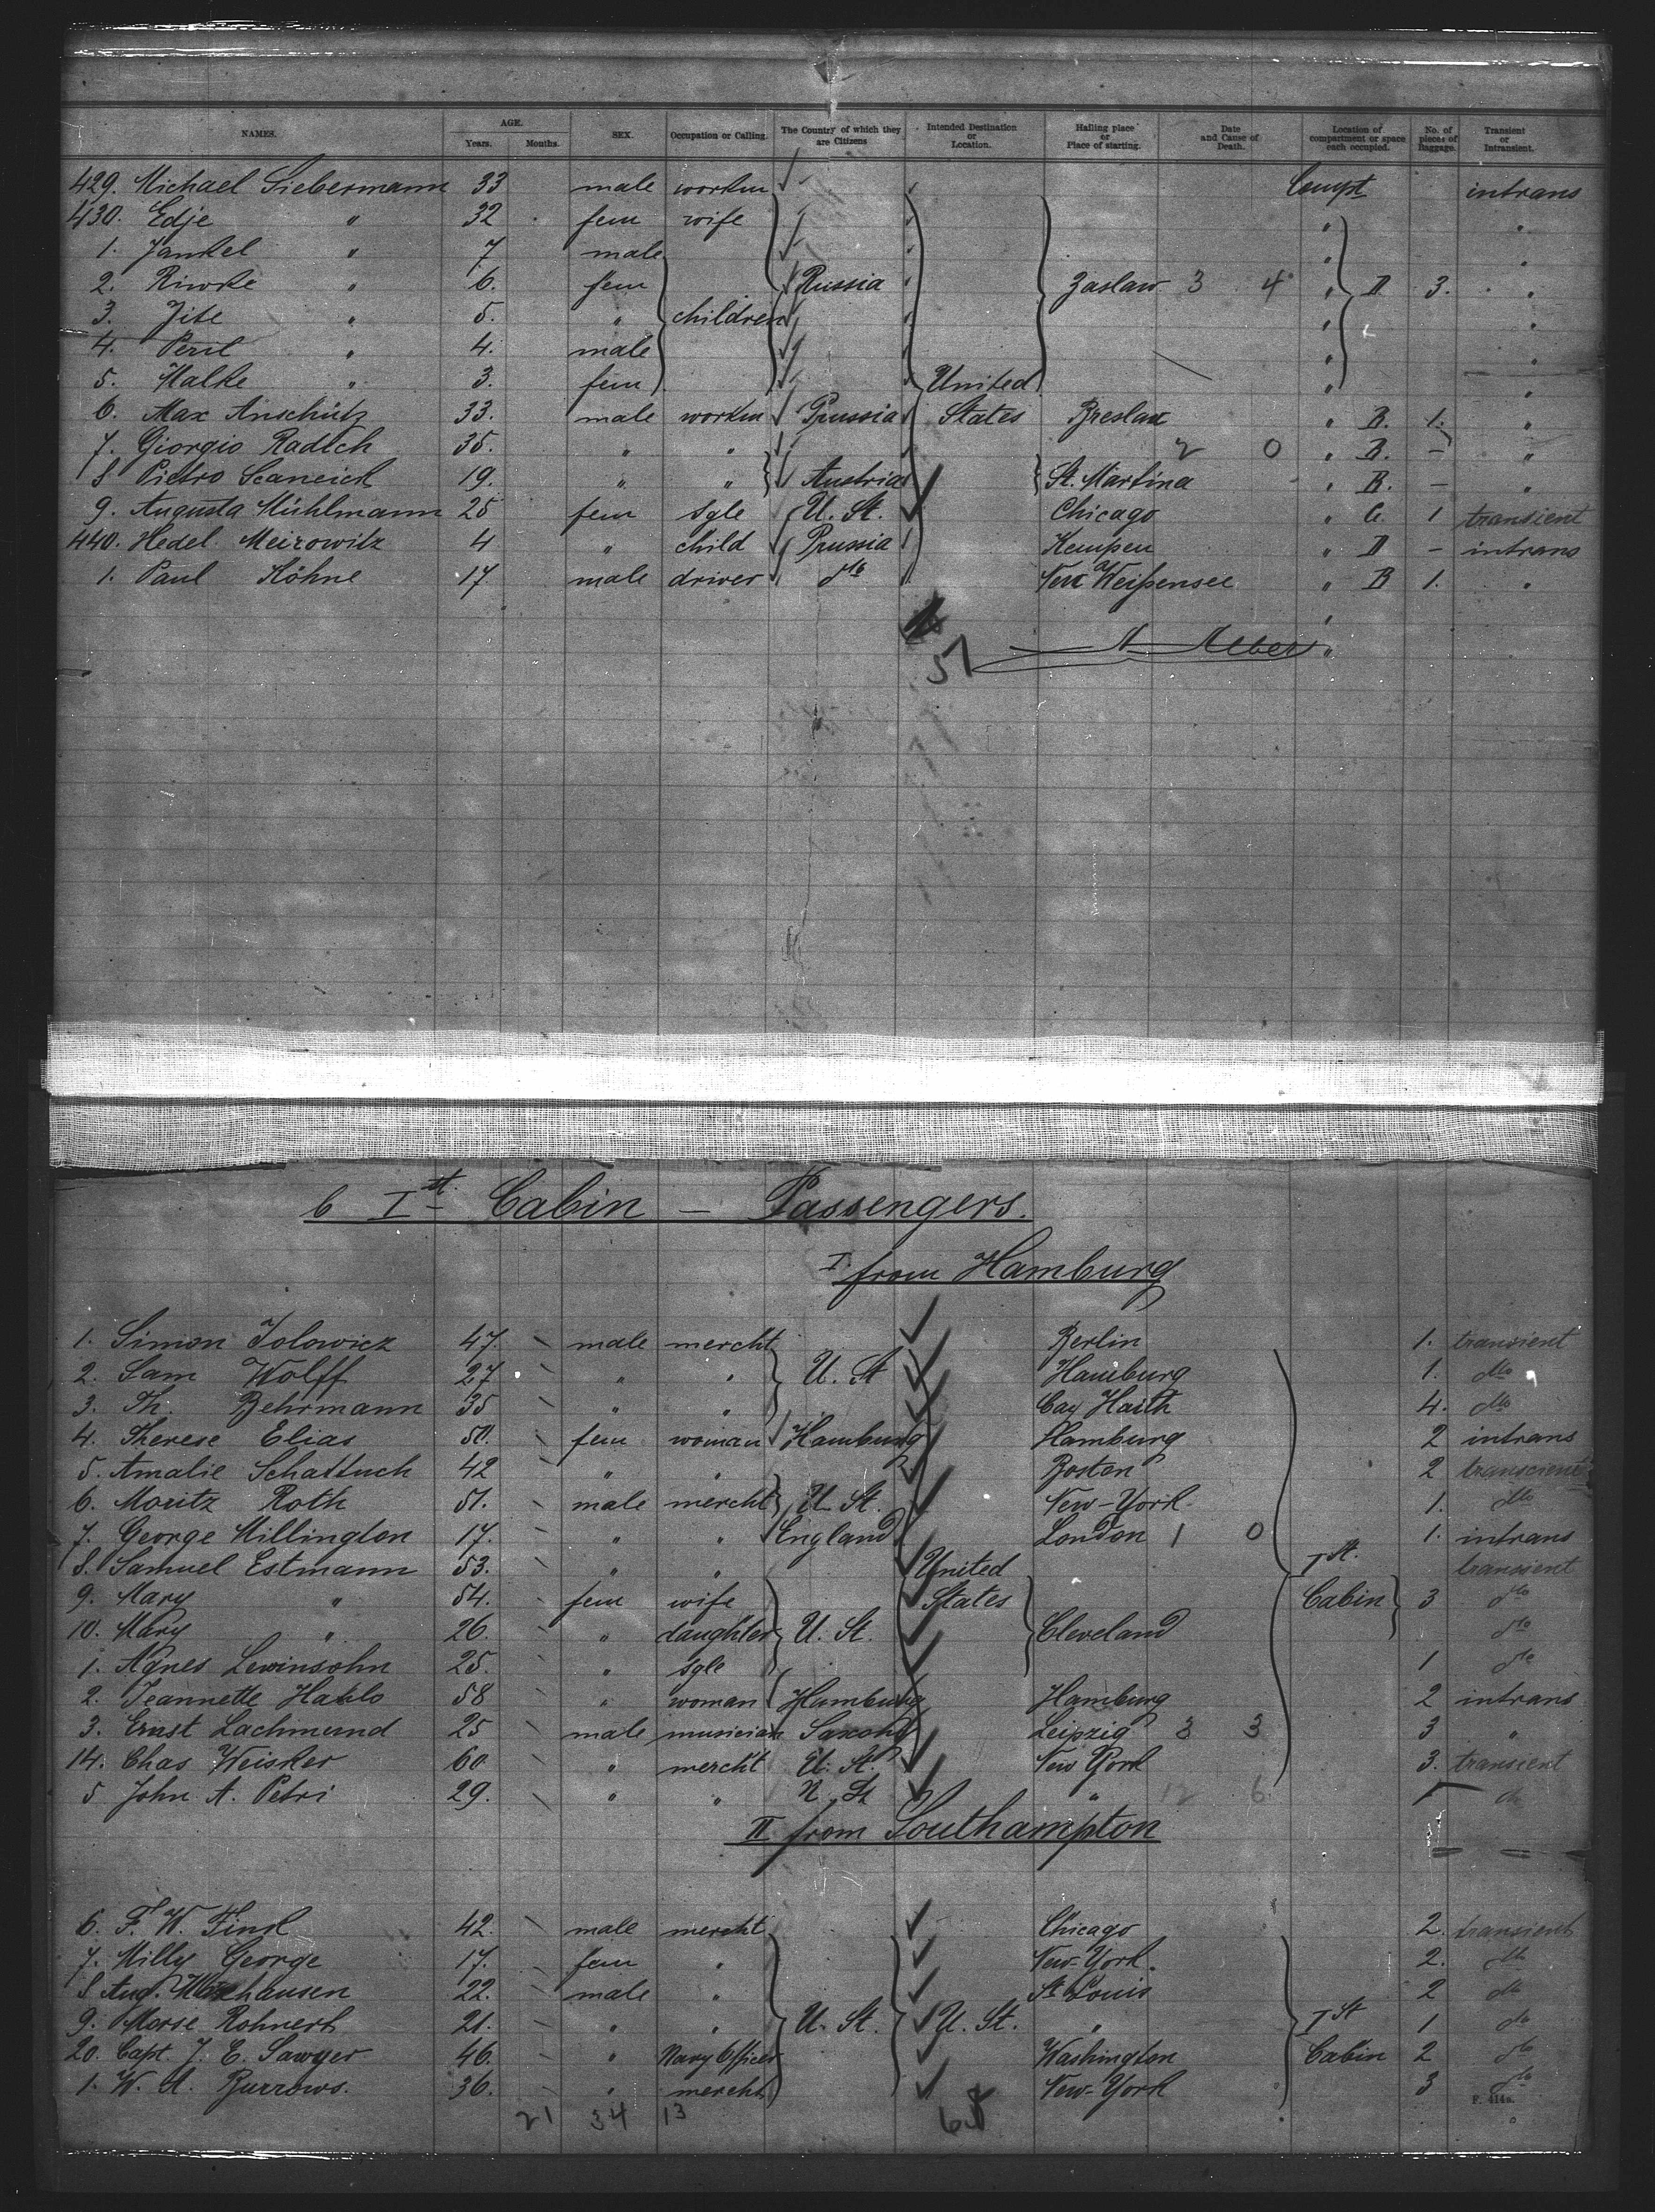 NAMES. AGE. Years. Months. SEX. Occupation or Calling. The Country of which they are Citizens Intended Destination or Location. Hailing place or Place of starting. Date and Cause of Death. Location of compartment or space each occupied. No. of pieces of Baggage. Transient or Intransient.
429. Michael Liebermann 33 male workm Compt intrans
430. Edje " 32 fem wife " "
1. Jankel " 7 male " "
2. Riwke " 6. fem Russia Zaslaw 3 4 " D 3. "
3. Jite " 5. " children " "
4. Peril " 4. male " "
5. Malke " 3. fem United " "
6. Max Anschütz 33. male workm Prussia States Breslau " B. 1. "
7. Giorgio Radich 35. " " 2 0 " B. - "
8 Pietro Scaneich 19. " " Austria St. Martina " B. - "
9. Augusta Mühlmann 25 fem sgle U. St. Chicago " C. 1 transient
440. Hedel Meirowitz 4 " child Prussia Kempen " D - intrans
1. Paul Köhne 17 male driver do Neu Weißensee " B 1. "
51
6 Ist Cabin - Passengers.
I. from Hamburg
1. Simon Jolowicz 47. male mercht Berlin 1. transient
2. Sam Wolff 27 " " U. St Hamburg 1. do
3. Th. Behrmann 35 " " Cay Haith 4. do
4. Therese Elias 50. fem woman Hamburg Hamburg 2 intrans
5. Amalie Schattuch 42 " " Boston 2 transcient
6. Moritz Roth 51. male mercht U. St. New-York 1. do
7. George Millington 17. " " England London 1 0 1. intrans
8. Samuel Estmann 53. " " United Ist. transient
9. Mary " 54. fem wife States Cabin 3 do
10. Mary " 26. " daughter U. St. Cleveland do
1. Agnes Lewinsohn 25. " sgle 1 do
2. Jeannette Hahlo 58 " woman Hamburg Hamburg 2 intrans
3. Ernst Lachmund 25 male musician Saxony Leipzig 3 3 3 "
14. Chas Weisker 60 " mercht U. St. New York 3. transient
5 John A. Petri 29. " " U. St " 12 6 do
II from Southampton
6. F. W. Finsl 42. male mercht Chicago 2. transient
7. Milly George 17. fem " New-York. 2. do
8 Aug. 22. male " St Louis 2 do
9. Morse Rohnert 21. " " U. St. U. St. " Ist 1 do
20. Capt. J. E. Sawyer 46. " Navy Officer Washington Cabin 2 do
1. W. A. Burrows. 36. " mercht New-York 3 do
F. 414a.
21 34 13